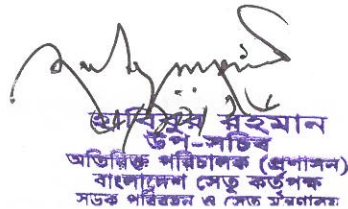 হাবিবুর রহমান
উপ-সচিব
অতিরিক্ত পরিচালক (প্রশাসন)
বাংলাদেশ সেতু কর্তৃপক্ষ
সড়ক পরিবহন ও সেতু মন্ত্রণালয়